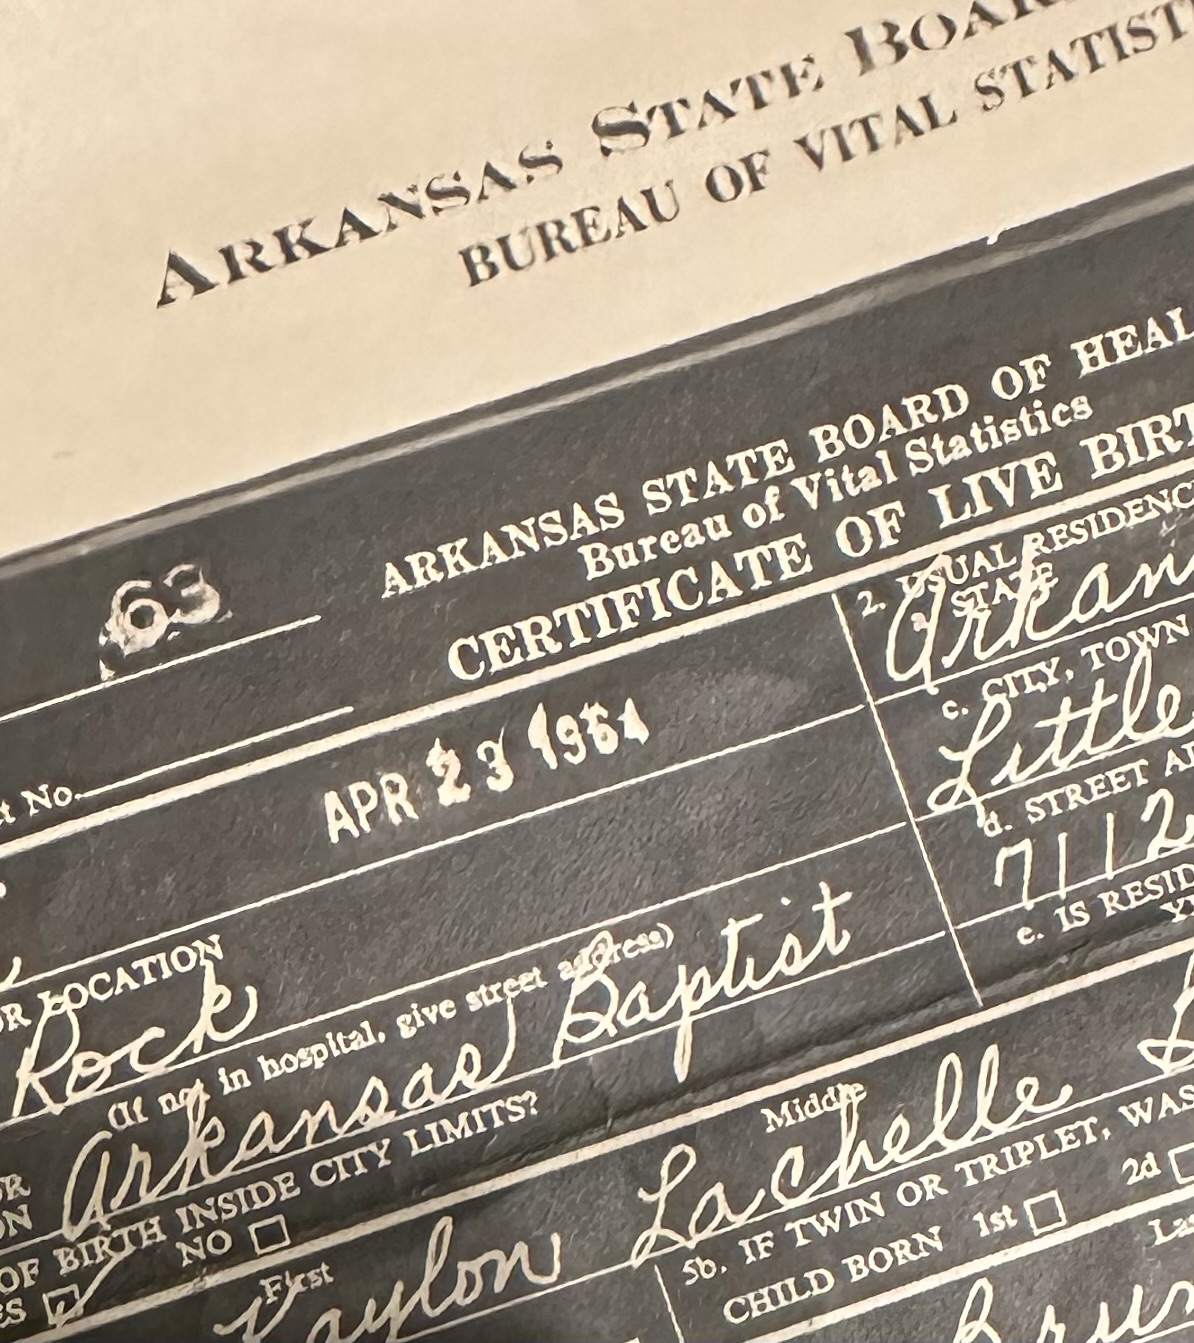 ARKANSAS STATE BOAR
BUREAU OF VITAL STATIST
ARKANSAS STATE BOARD OF HEAL
Bureau of Vital Statistics
CERTIFICATE OF LIVE BIRT
63
t No.
APR 23 1964
2. USUAL RESIDENC
a. STATE
Arkan
c. CITY, TOWN
Little
d. STREET A
7112
e. IS RESID
YE
OR LOCATION
Rock
(If not in hospital, give street address)
OR
ON
Arkansas Baptist
OF BIRTH INSIDE CITY LIMITS?
ES NO
First Middle La
aylon Lachelle
5b. IF TWIN OR TRIPLET, WAS
CHILD BORN 1st 2d